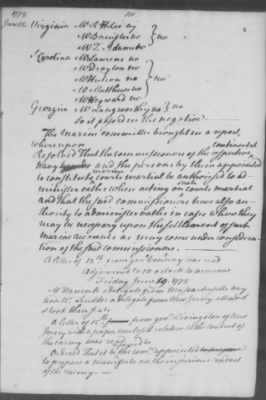 1778
111
June 18.
Virginia Mr R H Lee ay
Mr Banister no } no
Mr T. Adams no
S Carolina Mr Laurens no
Mr Drayton no
Mr Hutson no } no
Mr Mathews no
Mr Heyward no
Georgia Mr Langworthy no } no
So it passed in the negative.
The marine committee brought in a report,
whereupon
continental
Resolved That the commissioners of the
navy and the persons by them appointed
marine
to constitute courts martial be authorised to ad-
such
minister oaths when acting on courts martial
and that the said commissioners have also au-
thority to administer oaths in cases where they
may be necessary upon the settlement of such
marine accounts as may come under considera-
tion of the said commissioners.
A letter of 18th from gen Conway was read
Adjourned to 10 o'clock to morrow
Friday June 19. 1778
a delegate from Massachusetts bay
Mr Scudder a delegate from New Jersey attended
& took their seats.
A letter of 17th from govr Livingston of New
Jersey with a paper enclosed relative to the conduct of
the enemy was read
Ordered That it be the comee appointed
to prepare a manifesto on the conduct
of the enemy.